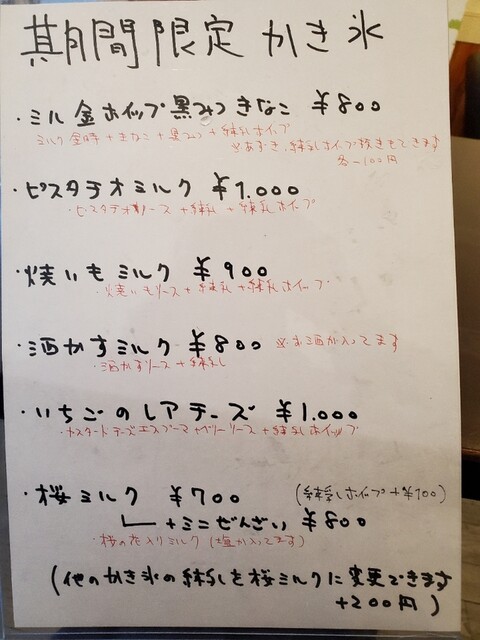 期間限定かき氷
・ミル金ホイップ黒みつきなこ ¥800
ミルク金時+きなこ+黒みつ+練乳ホイップ
※あずき、練乳ホイップ抜きもできます
各-100円
・ピスタチオミルク ¥1.000
・ピスタチオソース+練乳+練乳ホイップ
・焼いもミルク ¥900
・焼いもソース+練乳+練乳ホイップ
・酒かすミルク ¥800 ※お酒が入ってます
・酒かすソース+練乳
・いちごのレアチーズ ¥1.000
カスタードチーズエスプーマ+ベリーソース+練乳ホイップ
・桜ミルク ¥700 (練乳ホイップ+¥100)
+ミニぜんざい ¥800
・桜の花入りミルク(塩が入ってます)
(他のかき氷の練乳を桜ミルクに変更できます
+200円)